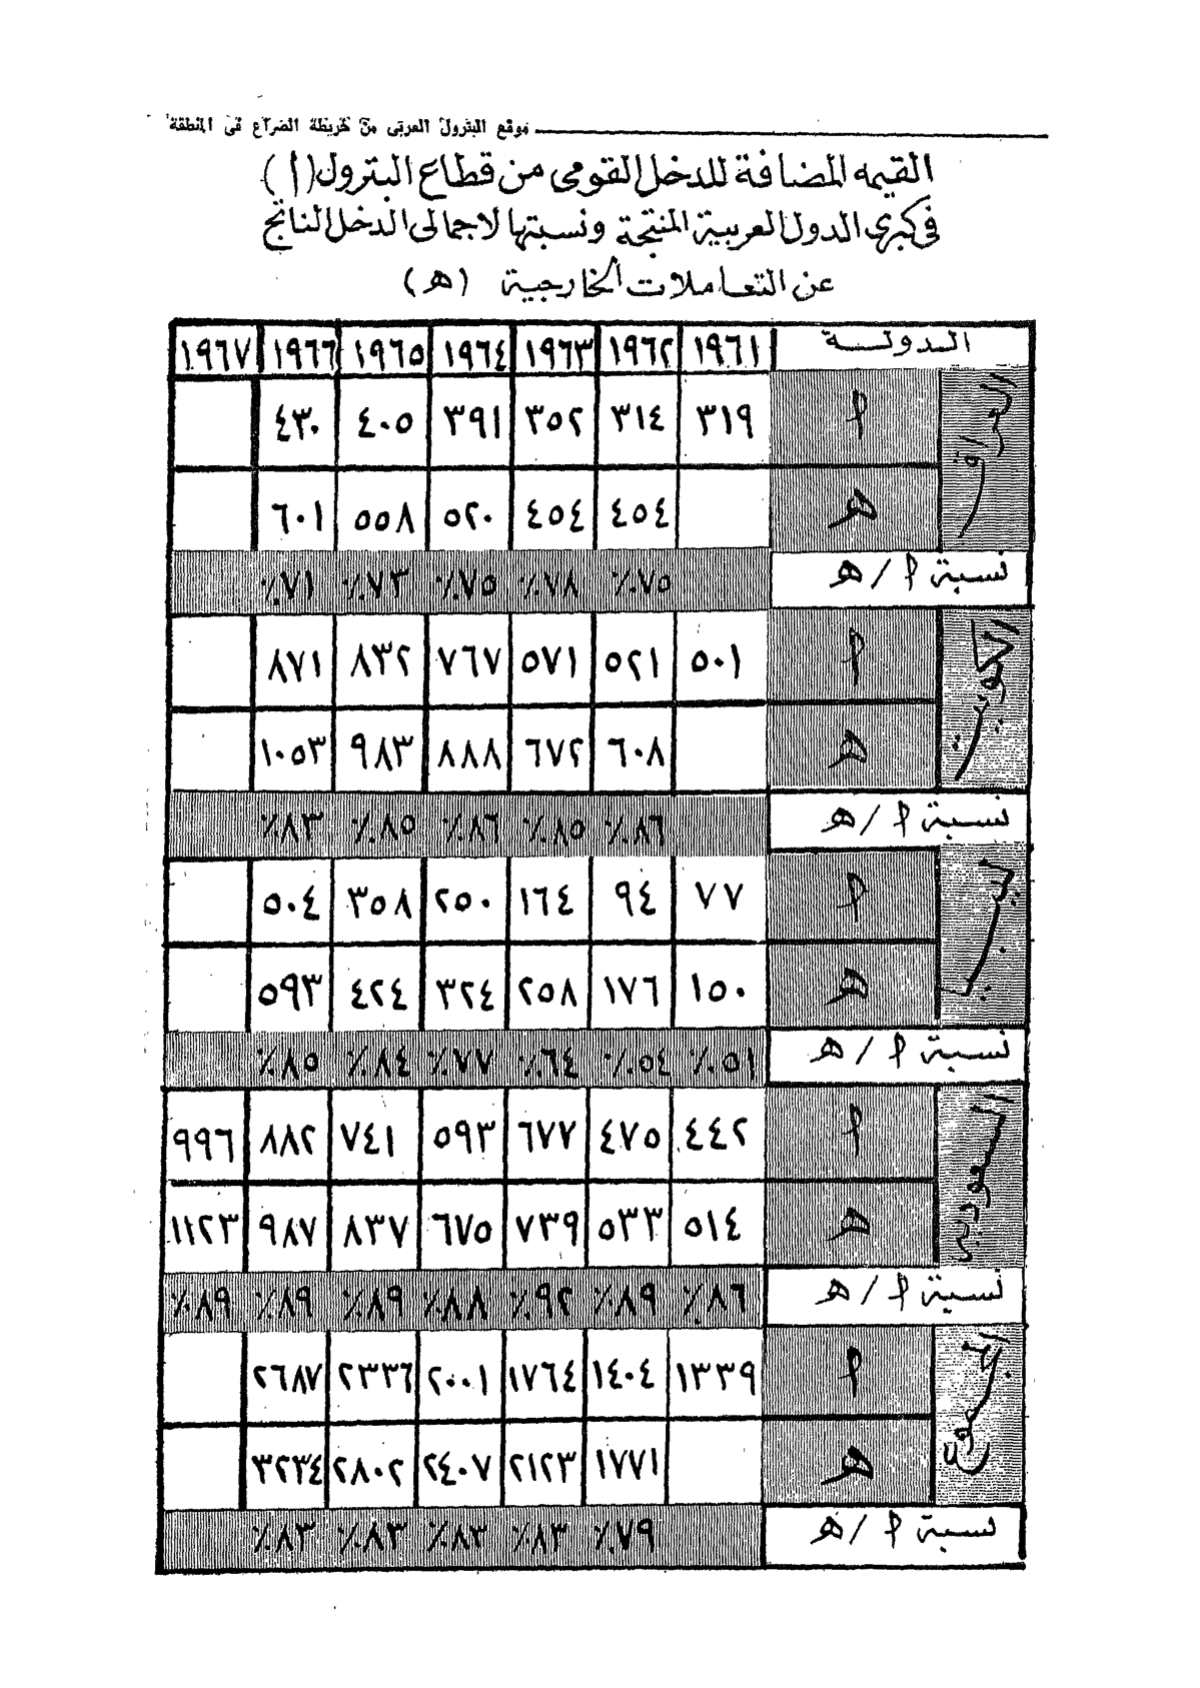 موقع البترول العربى من خريطة الصراع فى المنطقة
القيمه المضافة للدخل القومى من قطاع البترول (أ)
فى كبرى الدول العربية المنتجة ونسبتها لاجمالى الدخل الناتج
عن التعاملات الخارجية (هـ)
الدولة ١٩٦١ ١٩٦٢ ١٩٦٣ ١٩٦٤ ١٩٦٥ ١٩٦٦ ١٩٦٧
العراق
أ ٣١٩ ٣١٤ ٣٥٢ ٣٩١ ٤٠٥ ٤٣٠
هـ ٤٥٤ ٤٥٤ ٥٢٠ ٥٥٨ ٦٠١
نسبة أ / هـ ٧٥٪ ٧٨٪ ٧٥٪ ٧٣٪ ٧١٪
الكويت
أ ٥٠١ ٥٢١ ٥٧١ ٧٦٧ ٨٣٢ ٨٧١
هـ ٦٠٨ ٦٧٢ ٨٨٨ ٩٨٣ ١٠٥٣
نسبة أ / هـ ٨٦٪ ٨٥٪ ٨٦٪ ٨٥٪ ٨٣٪
ليبيا
أ ٧٧ ٩٤ ١٦٤ ٢٥٠ ٣٥٨ ٥٠٤
هـ ١٥٠ ١٧٦ ٢٥٨ ٣٢٤ ٤٢٤ ٥٩٣
نسبة أ / هـ ٥١٪ ٥٤٪ ٦٤٪ ٧٧٪ ٨٤٪ ٨٥٪
السعودية
أ ٤٤٢ ٤٧٥ ٦٧٧ ٥٩٣ ٧٤١ ٨٨٢ ٩٩٦
هـ ٥١٤ ٥٣٣ ٧٣٩ ٦٧٥ ٨٣٧ ٩٨٧ ١١٢٣
نسبة أ / هـ ٨٦٪ ٨٩٪ ٩٢٪ ٨٨٪ ٨٩٪ ٨٩٪ ٨٩٪
المجموع
أ ١٣٣٩ ١٤٠٤ ١٧٦٤ ٢٠٠١ ٢٣٣٦ ٢٦٨٧
هـ ١٧٧١ ٢١٢٣ ٢٤٠٧ ٢٨٠٢ ٣٢٣٤
نسبة أ / هـ ٧٩٪ ٨٣٪ ٨٣٪ ٨٣٪ ٨٣٪